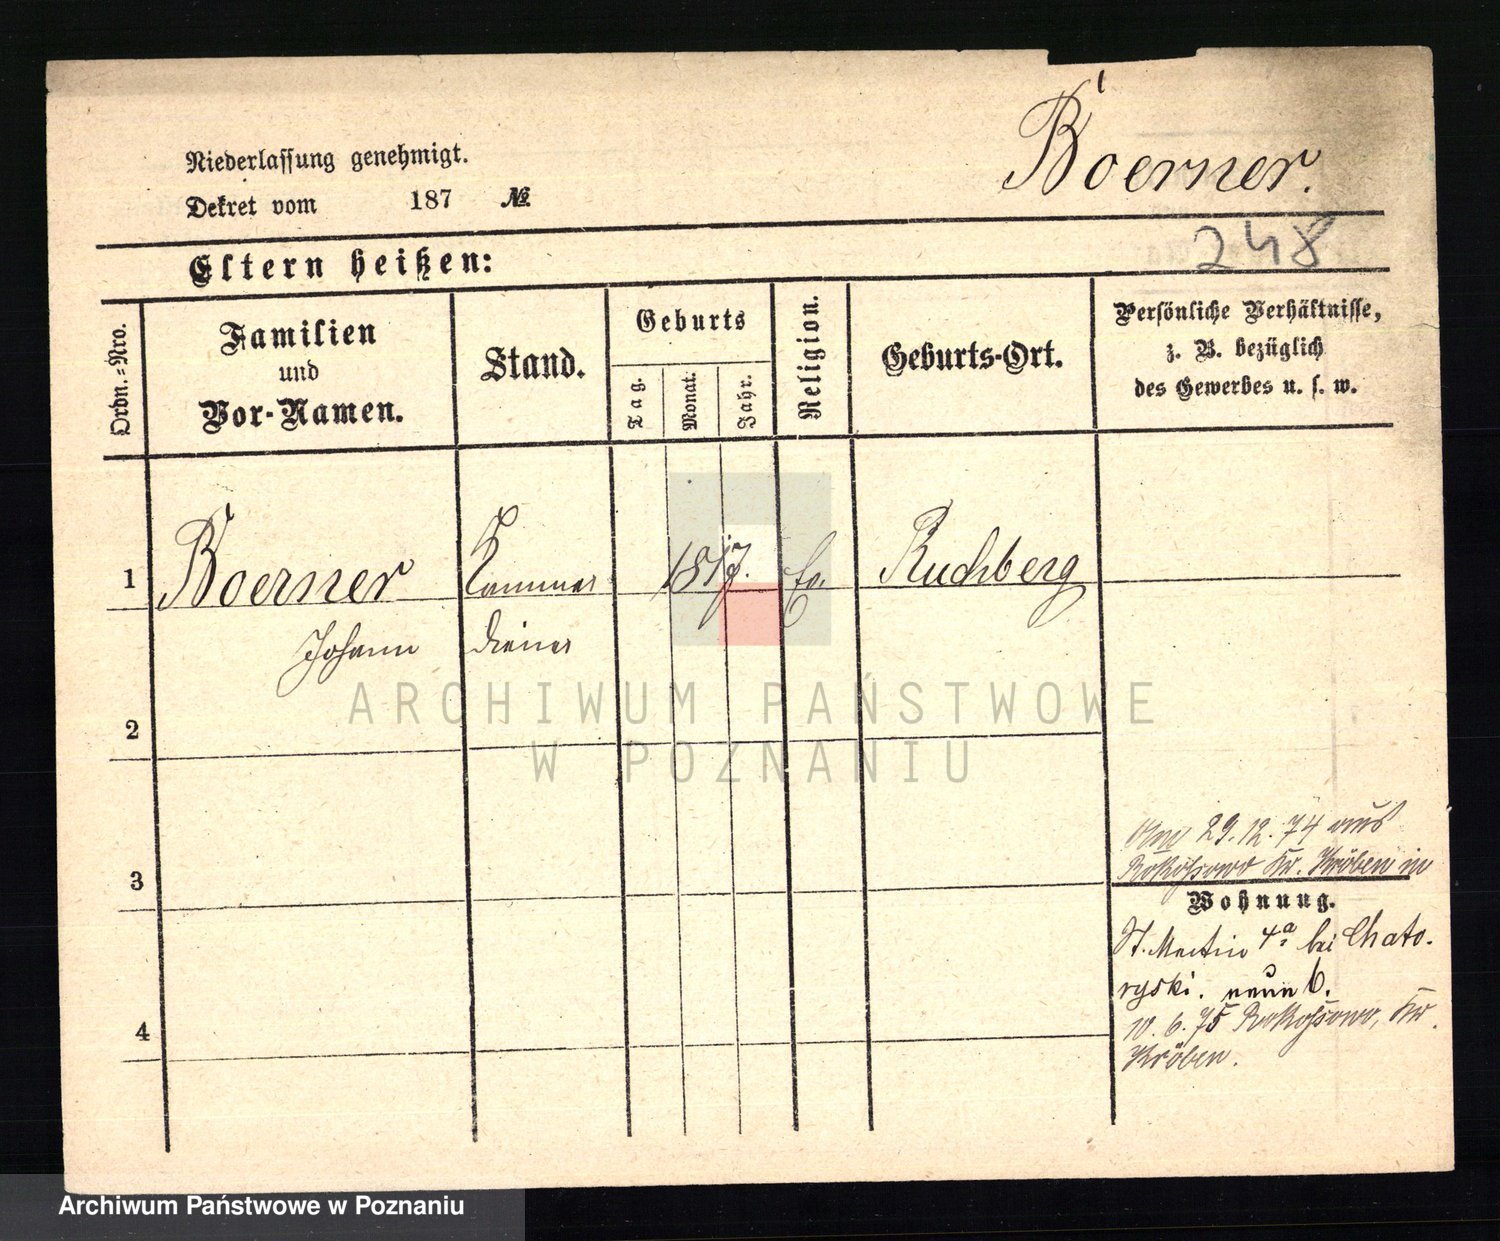 Boerner.
Niederlassung genehmigt.
Dekret vom 187 №
248
Eltern heißen:
Ordn.-Nro.
Familien
und
Vor-Namen.
Stand.
Geburts
Tag.
Monat.
Jahr.
Religion.
Geburts-Ort.
Persönliche Verhältnisse,
z. B. bezüglich
des Gewerbes u. s. w.
1 Boerner Kammer 1817. Ev. Ruchberg
Johann diener
2
3
4
Am 29.12.74 aus
Rokossowo Kr. Kröben in
Wohnung.
St. Martin 4a bei Chato-
ryski. neun 6.
10.6.75 Rokossowo, Kr.
Kröben.
ARCHIWUM PAŃSTWOWE
W POZNANIU
Archiwum Państwowe w Poznaniu